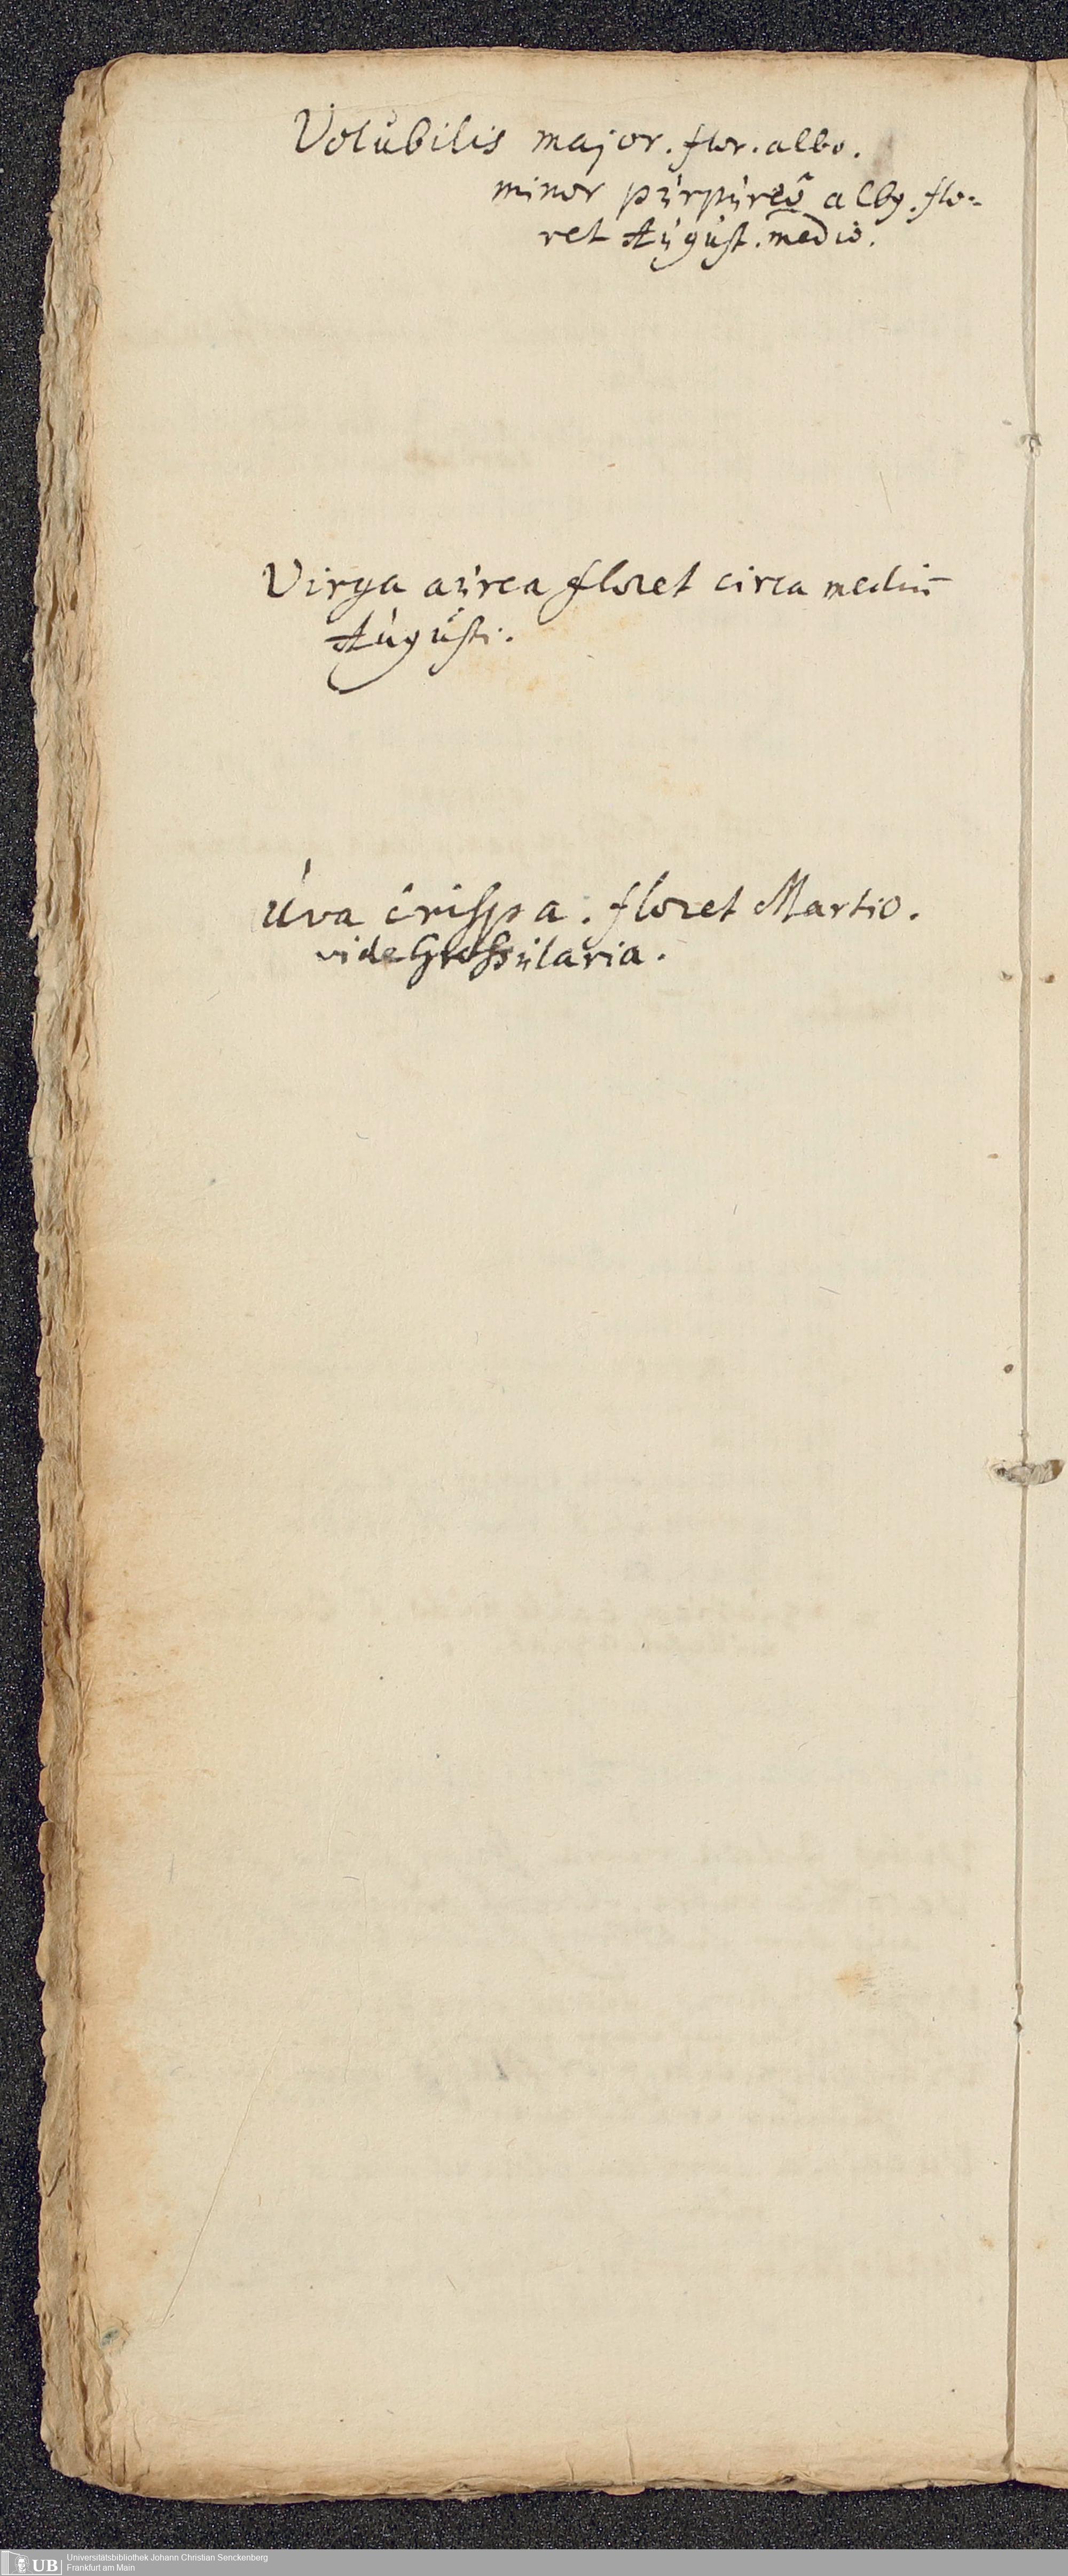 Volubilis major. flor. albo.
minor purpureo albq. flo-
ret August. medio.
Virga aurea floret circa mediū
Augusti.
Uva crispa. floret Martio.
vide Grossularia.
UB
Universitätsbibliothek Johann Christian Senckenberg
Frankfurt am Main